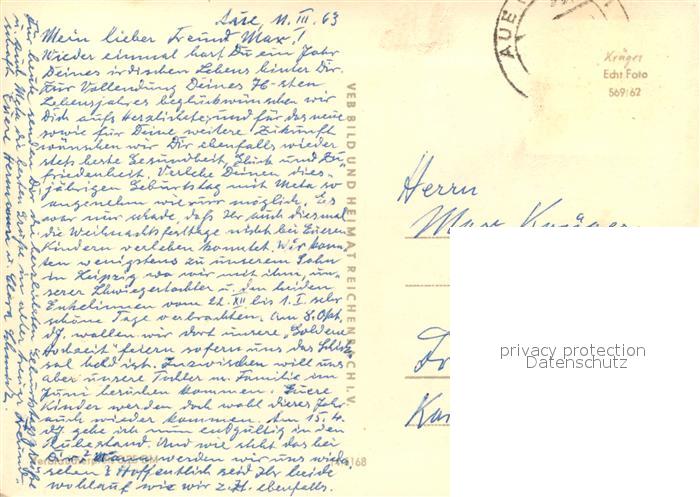 Aue, 11. III. 63
Mein lieber Freund Max!
Wieder einmal hast Du ein Jahr
Deines irdischen Lebens hinter Dir.
Zur Vollendung Deines 76-sten
Lebensjahres beglückwünschen wir
Dich aufs Herzlichste und für das neue
sowie für Deine weitere Zukunft
wünschen wir Dir ebenfalls wieder
stets beste Gesundheit, Glück und Zu-
friedenheit. Verlebe Deinen dies-
jährigen Geburtstag mit Meta so
angenehm wie nur möglich. Es
war nur schade, daß Ihr auch diesmal
die Weihnachtsfesttage nicht bei Eueren
Kindern verleben konntet. Wir konn-
ten wenigstens zu unserem Sohn
in Leipzig wo wir mit ihm, un-
serer Schwiegertochter u. den beiden
Enkelinnen vom 22. XII bis 1. I sehr
schöne Tage verbrachten. Am 8. Okt.
dJ. wollen wir dort unsere "Goldene
Hochzeit" feiern sofern uns das Schick-
sal hold ist. Inzwischen will uns
aber unsere Tochter m. Familie im
Juni besuchen kommen. Euere
Kinder werden doch wohl dieses Jahr
auch wieder kommen. Am 15. 4.
dJ. gehe ich nun endgültig in den
Ruhestand. Und wie steht das bei
Dir? Wann werden wir uns wieder
sehen? Hoffentlich seid Ihr beide
wohlauf wie wir z. Zt. ebenfalls.
Für heute senden Dir die herzlichsten Geburtstagsgrüße
u. auch Meta die besten Grüße in alter treuer Freund-
schaft Euere Hermann u. Clara
VEB BILD UND HEIMAT REICHENBACH I. V.
AUE
Krüger
Echt Foto
569/62
Herrn
Max Krüger
privacy protection
Datenschutz